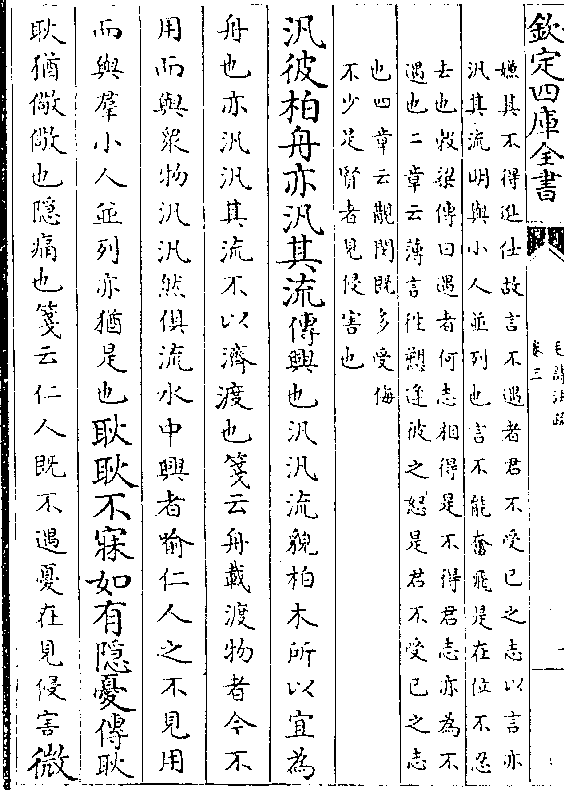 欽定四庫全書
毛詩注疏
卷三
嫌其不得進仕故言不遇者君不受已之志以言亦
汎其流明與小人並列也言不能奮飛是在位不忍
去也榖梁傳曰遇者何志相得是不得君志亦為不
遇也二章云薄言往愬逢彼之怒是君不受已之志
也四章云覯閔既多受侮
不少是賢者見侵害也
汎彼柏舟亦汎其流傳興也汎汎流貌柏木所以宜為
舟也亦汎汎其流不以濟渡也箋云舟載渡物者今不
用而與衆物汎汎然俱流水中興者喻仁人之不見用
而與羣小人並列亦猶是也耿耿不寐如有隱憂傳耿
耿猶儆儆也隱痛也箋云仁人既不遇憂在見侵害微